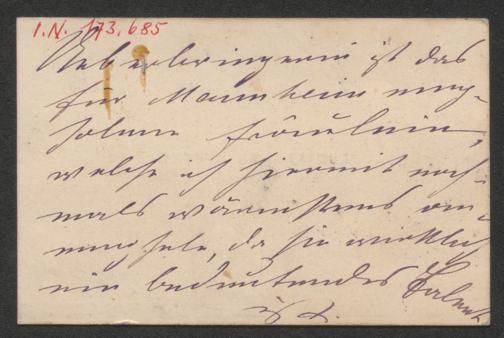 I.N. 173.685
Ueberbringerin ist das
für Mannheim emp-
fohlene Fräulein,
welche ich hiermit noch-
mals wärmstens an-
empfehle, da sie wirklich
ein bedeutendes Talent
ist.